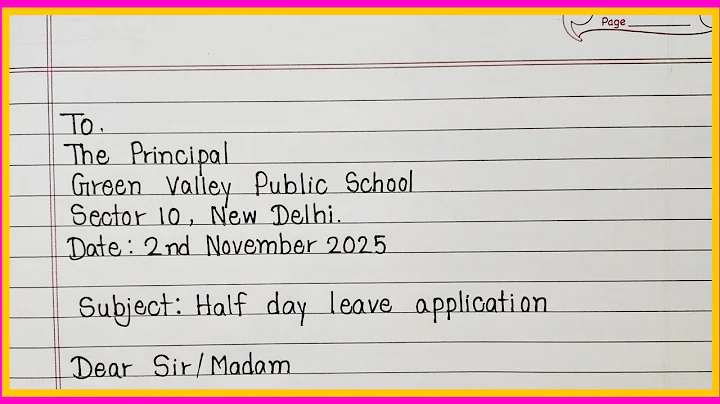 Page
To.
The Principal
Green Valley Public School
Sector 10, New Delhi.
Date: 2nd November 2025
Subject: Half day leave application
Dear Sir/Madam